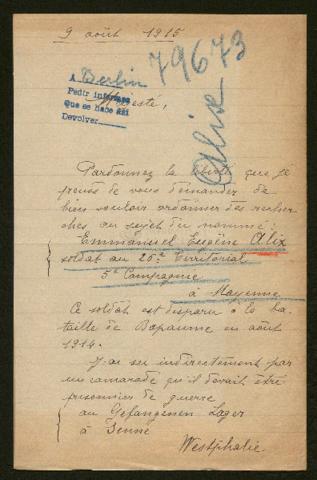 9 août 1915
79673
A Berlin
Pedir informes
Que se hace así
Devolver
Alix
Majesté,
Pardonnez la liberté que je
prends de vous demander de
bien vouloir ordonner des recher
ches au sujet du nommé:
Emmanuel Eugène Alix
soldat au 26e Territorial
5e Compagnie
à Mayenne
Ce soldat est disparu à la ba
taille de Bapaume en août
1914.
J'ai su indirectement par
un camarade qu'il devait être
prisonnier de guerre
au Gefangenen Lager
à Senne
Westphalie